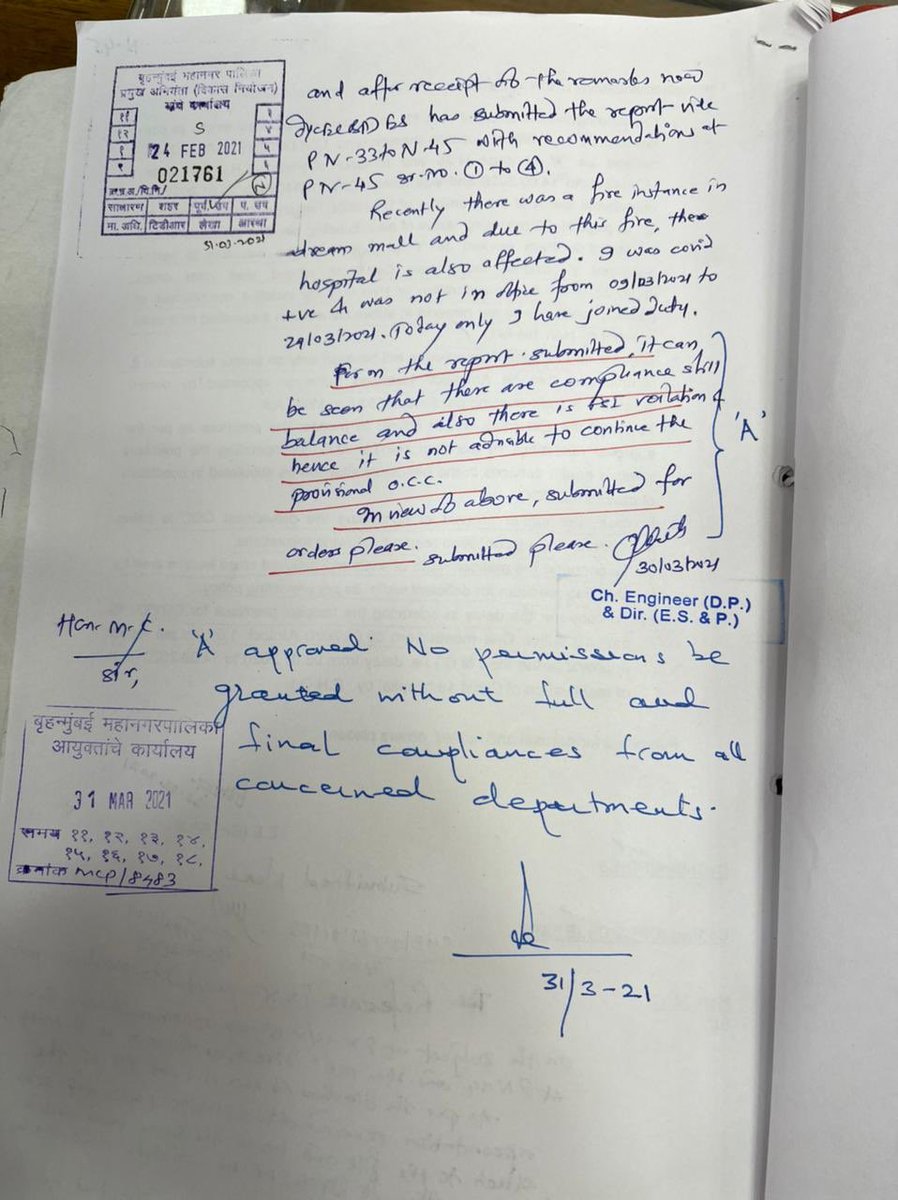 बृहन्मुंबई महानगर पालिका
प्रमुख अभियंता (विकास नियोजन)
यांचे कार्यालय
S
24 FEB 2021
021761
साधारण शहर पूर्व प. उप
मा. अधि. टिडीआर लेखा आस्था
31-03-2021
and after receipt of the remarks now
has submitted the report vide
PN-33 to N-45 with recommendations at
PN-45 sr.no. ① to ④.
Recently there was a fire instance in
dream mall and due to this fire, the
hospital is also affected. I was covid
+ve & was not in office from 09/03/2021 to
29/03/2021. Today only I have joined duty.
From the report submitted, it can
be seen that there are compliance still
balance and also there is FSI voilation &
hence it is not advisable to continue the
provisional O.C.C.
In view of above, submitted for
orders please. submitted please.
'A'
30/03/2021
Ch. Engineer (D.P.)
& Dir. (E.S. & P.)
Hon. M.C.
Sir,
'A' approved. No permissions be
granted without full and
final compliances from all
concerned departments.
बृहन्मुंबई महानगरपालिका
आयुक्तांचे कार्यालय
31 MAR 2021
समय ११, १२, १३, १४,
१५, १६, १७, १८,
क्रमांक MCP/8483
31/3-21